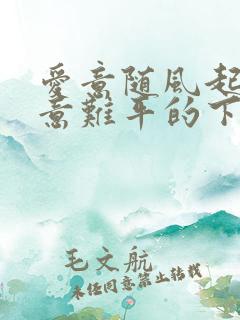 愛意随風起
意難平的下
毛文航
未经同意禁止转载